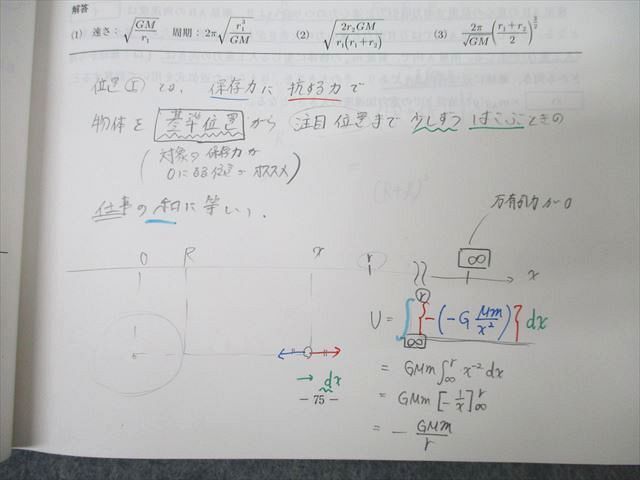 解答
(1) 速さ：√(GM/r₁)　周期：2π√(r₁³/GM)　(2) √(2r₂GM/(r₁(r₁+r₂)))　(3) 2π/√GM ((r₁+r₂)/2)^(3/2)
位置①とは、保存力に抗する力で
物体を基準位置から注目位置まで少しずつはこぶときの
(対象の保存力が
0になる位置がオススメ)
仕事の和に等しい.
万有引力が0
O R x r ∞ x
U = ∫_∞^r {-(-G Mm/x²)} dx
= GMm∫_∞^r x⁻² dx
= GMm[-1/x]_∞^r
= - GMm/r
→ dx
- 75 -